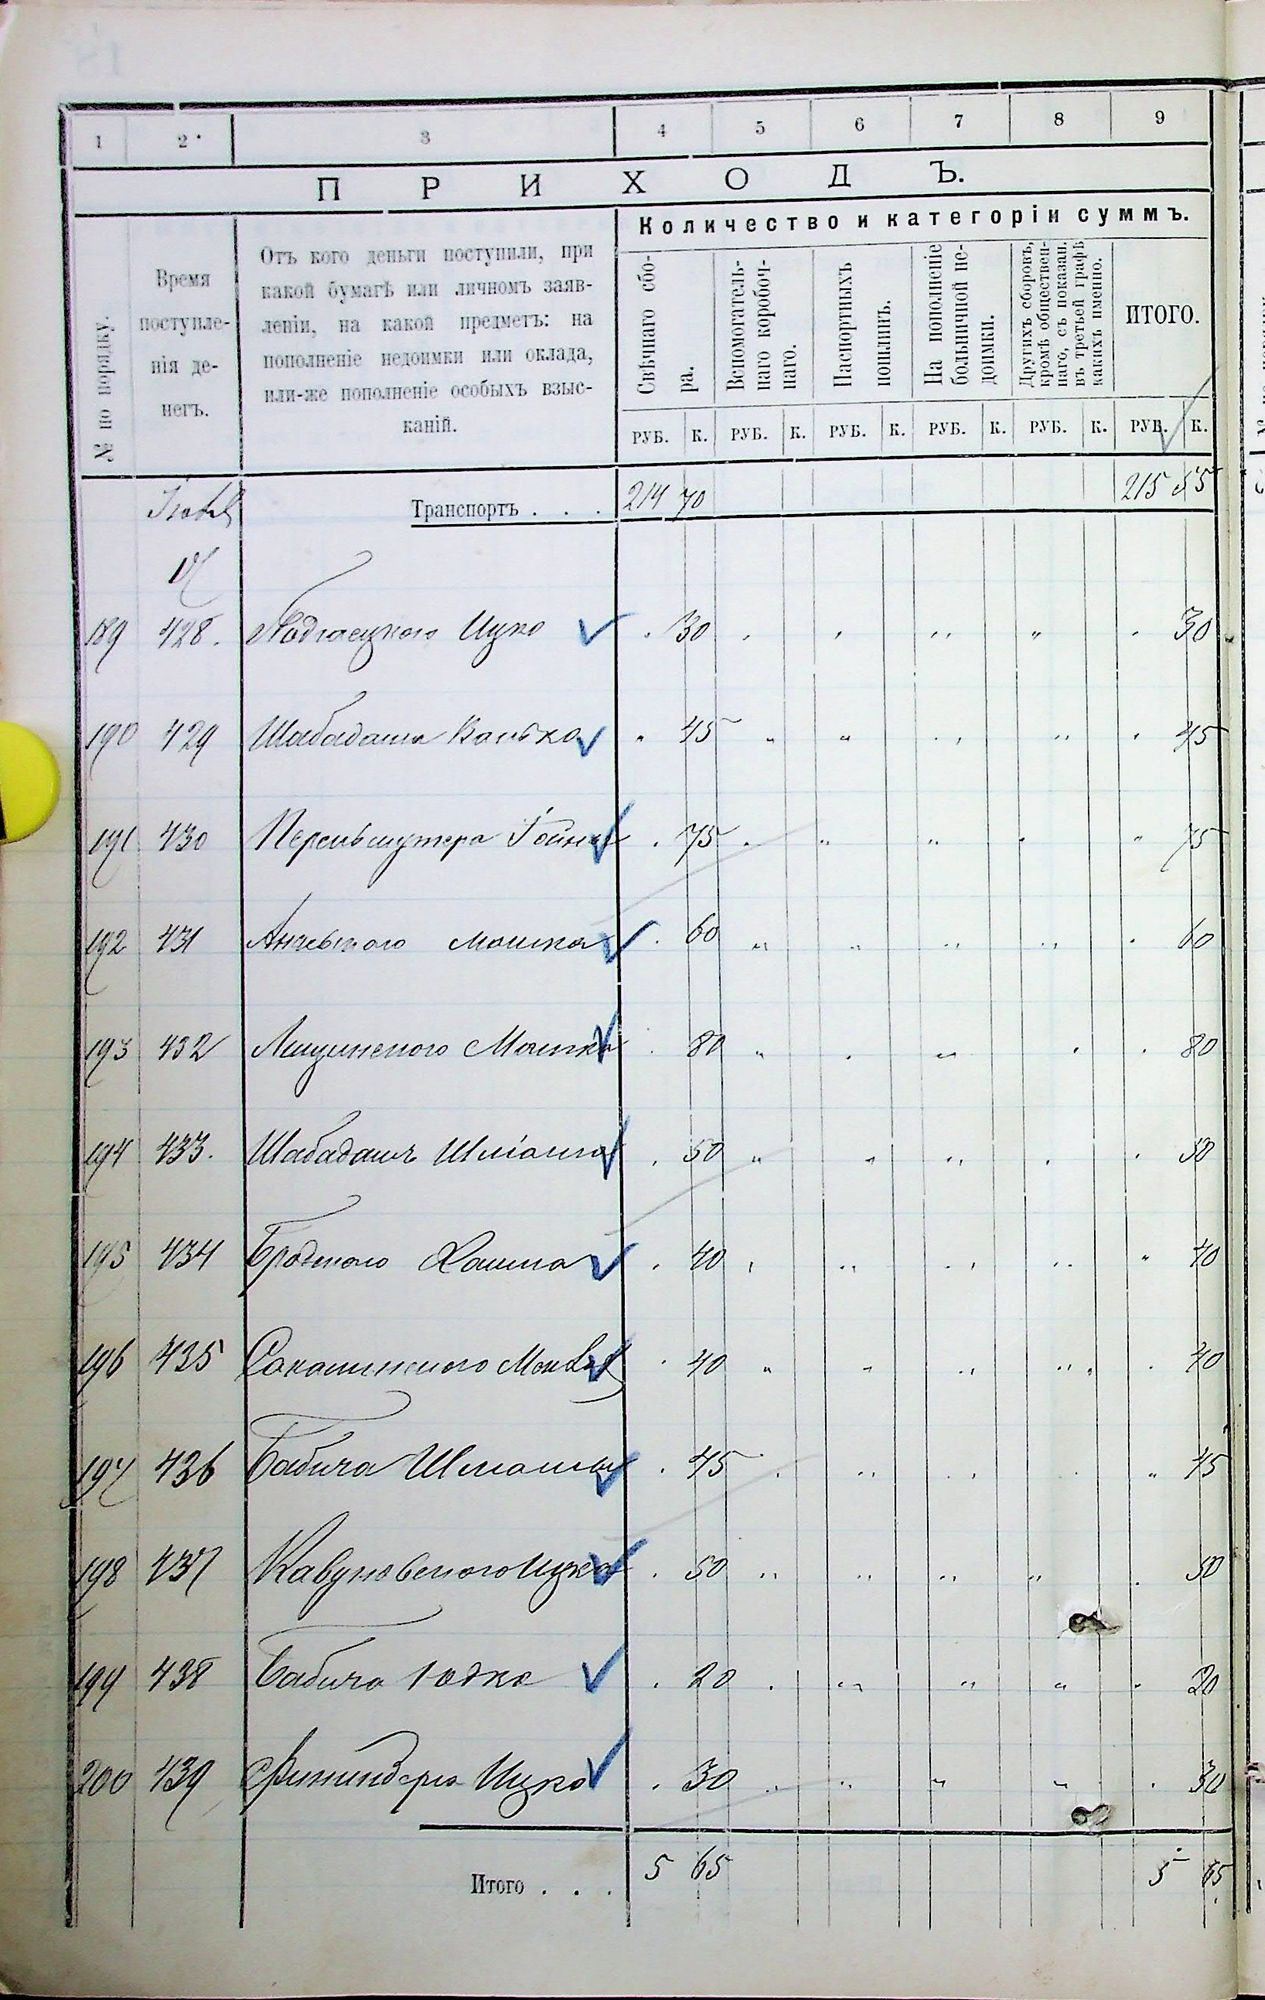 1 2 3 4 5 6 7 8 9
ПРИХОДЪ.
№ по порядку.
Время
поступле-
нія де-
негъ.
Отъ кого деньги поступили, при
какой бумагѣ или личномъ заяв-
леніи, на какой предметъ: на
пополненіе недоимки или оклада,
или-же пополненіе особыхъ взыс-
каній.
Количество и категоріи суммъ.
Свѣчнаго сбо-
ра.
Вспомогатель-
наго коробоч-
наго.
Паспортныхъ
пошлинъ.
На пополненіе
больничной не-
доимки.
Другихъ сборовъ,
кромѣ обществен-
наго, съ показан.
въ третьей графѣ
какихъ именно.
ИТОГО.
РУБ. К. РУБ. К. РУБ. К. РУБ. К. РУБ. К. РУБ. К.
Транспортъ . . . 214 70 215 55
189 428. Подгаецкого Ицко 30 30
190 429 Шабадаша 45 45
191 430 75 75
192 431 Мошка 60 60
193 432 Лещинского Мошка 80 80
194 433. Шабадашъ Шліома 50 50
195 434 Бродского Хаима 40 40
196 435 40 40
197 436 Бабича Шліомы 45 45
198 437 Кавуновского Ицко 50 50
199 438 Бабича Іодко 20 20
200 439 Ицко 30 30
Итого . . . 5 65 5 65